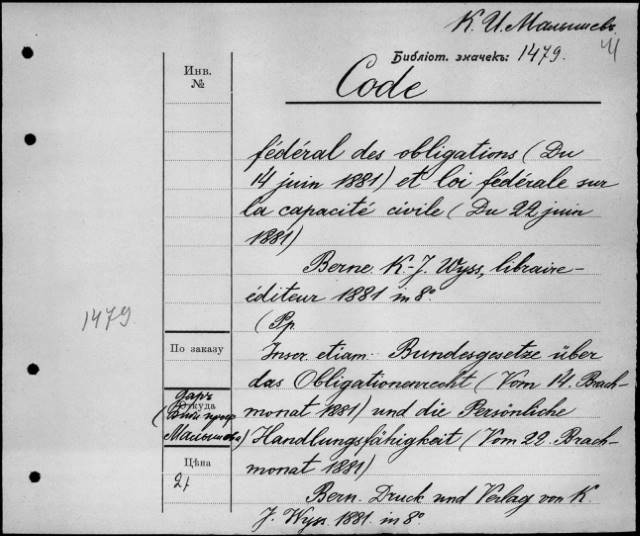 К. И. Малышевъ
Библіот. значекъ: 1479.
Инв.
№
Code
fédéral des obligations (Du
14 juin 1881) et loi fédérale sur
la capacité civile (Du 22 juin
1881)
Berne. K.-J. Wyss, libraire-
éditeur 1881 in 8º
(Pp.
1479.
По заказу
Inscr. etiam: Bundesgesetze über
das Obligationenrecht (Vom 14. Brach-
monat 1881) und die Persönliche
Handlungsfähigkeit (Vom 22. Brach-
monat 1881)
Даръ
Откуда
Малышева)
Цѣна
2 г
Bern. Druck und Verlag von K.
J. Wyss. 1881. in 8º